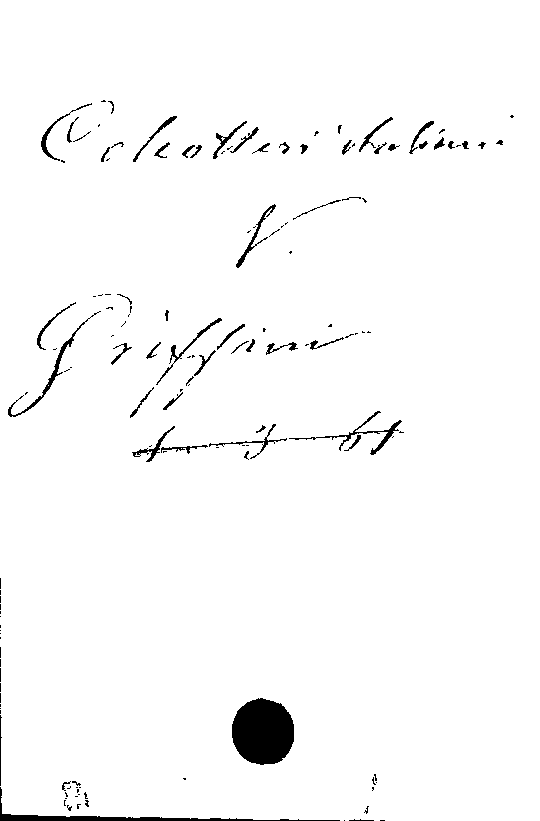 Coleotteri italiani
V.
Griffini
1 3 61